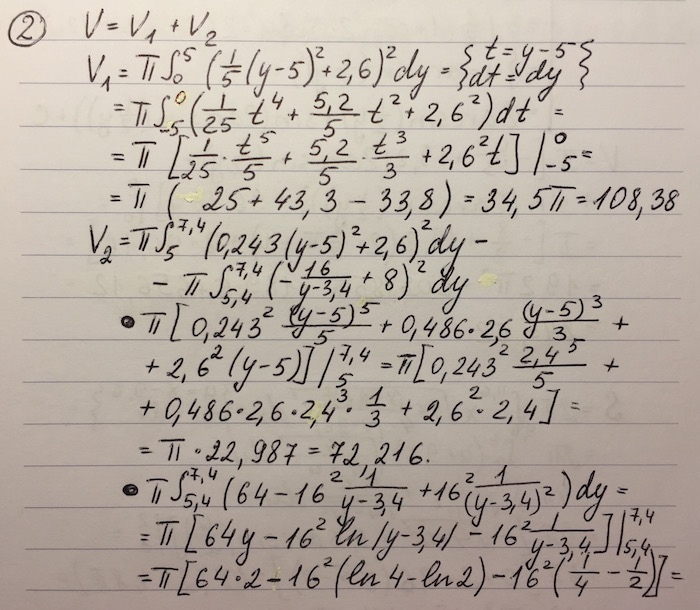 ② V = V₁ + V₂
V₁ = π∫₀⁵ (1/5 (y-5)² + 2,6)² dy = {t = y-5
dt = dy}
= π∫₋₅⁰ (1/25 t⁴ + 5,2/5 t² + 2,6²) dt =
= π [1/25 · t⁵/5 + 5,2/5 · t³/3 + 2,6² t] |₋₅⁰ =
= π ( 25 + 43,3 - 33,8) = 34,5π = 108,38
V₂ = π∫₅^7,4 (0,243 (y-5)² + 2,6)² dy -
- π∫_5,4^7,4 (- 16/(y-3,4) + 8)² dy
• π [0,243² (y-5)⁵/5 + 0,486·2,6 (y-5)³/3 +
+ 2,6² (y-5)] |₅^7,4 = π [0,243² 2,4⁵/5 +
+ 0,486·2,6·2,4³ · 1/3 + 2,6² · 2,4] =
= π · 22,987 = 72,216.
• π∫_5,4^7,4 (64 - 16² 1/(y-3,4) + 16² 1/(y-3,4)²) dy =
= π [64y - 16² ln|y-3,4| - 16² 1/(y-3,4)] |_5,4^7,4
= π [64·2 - 16² (ln 4 - ln 2) - 16² (1/4 - 1/2)] =